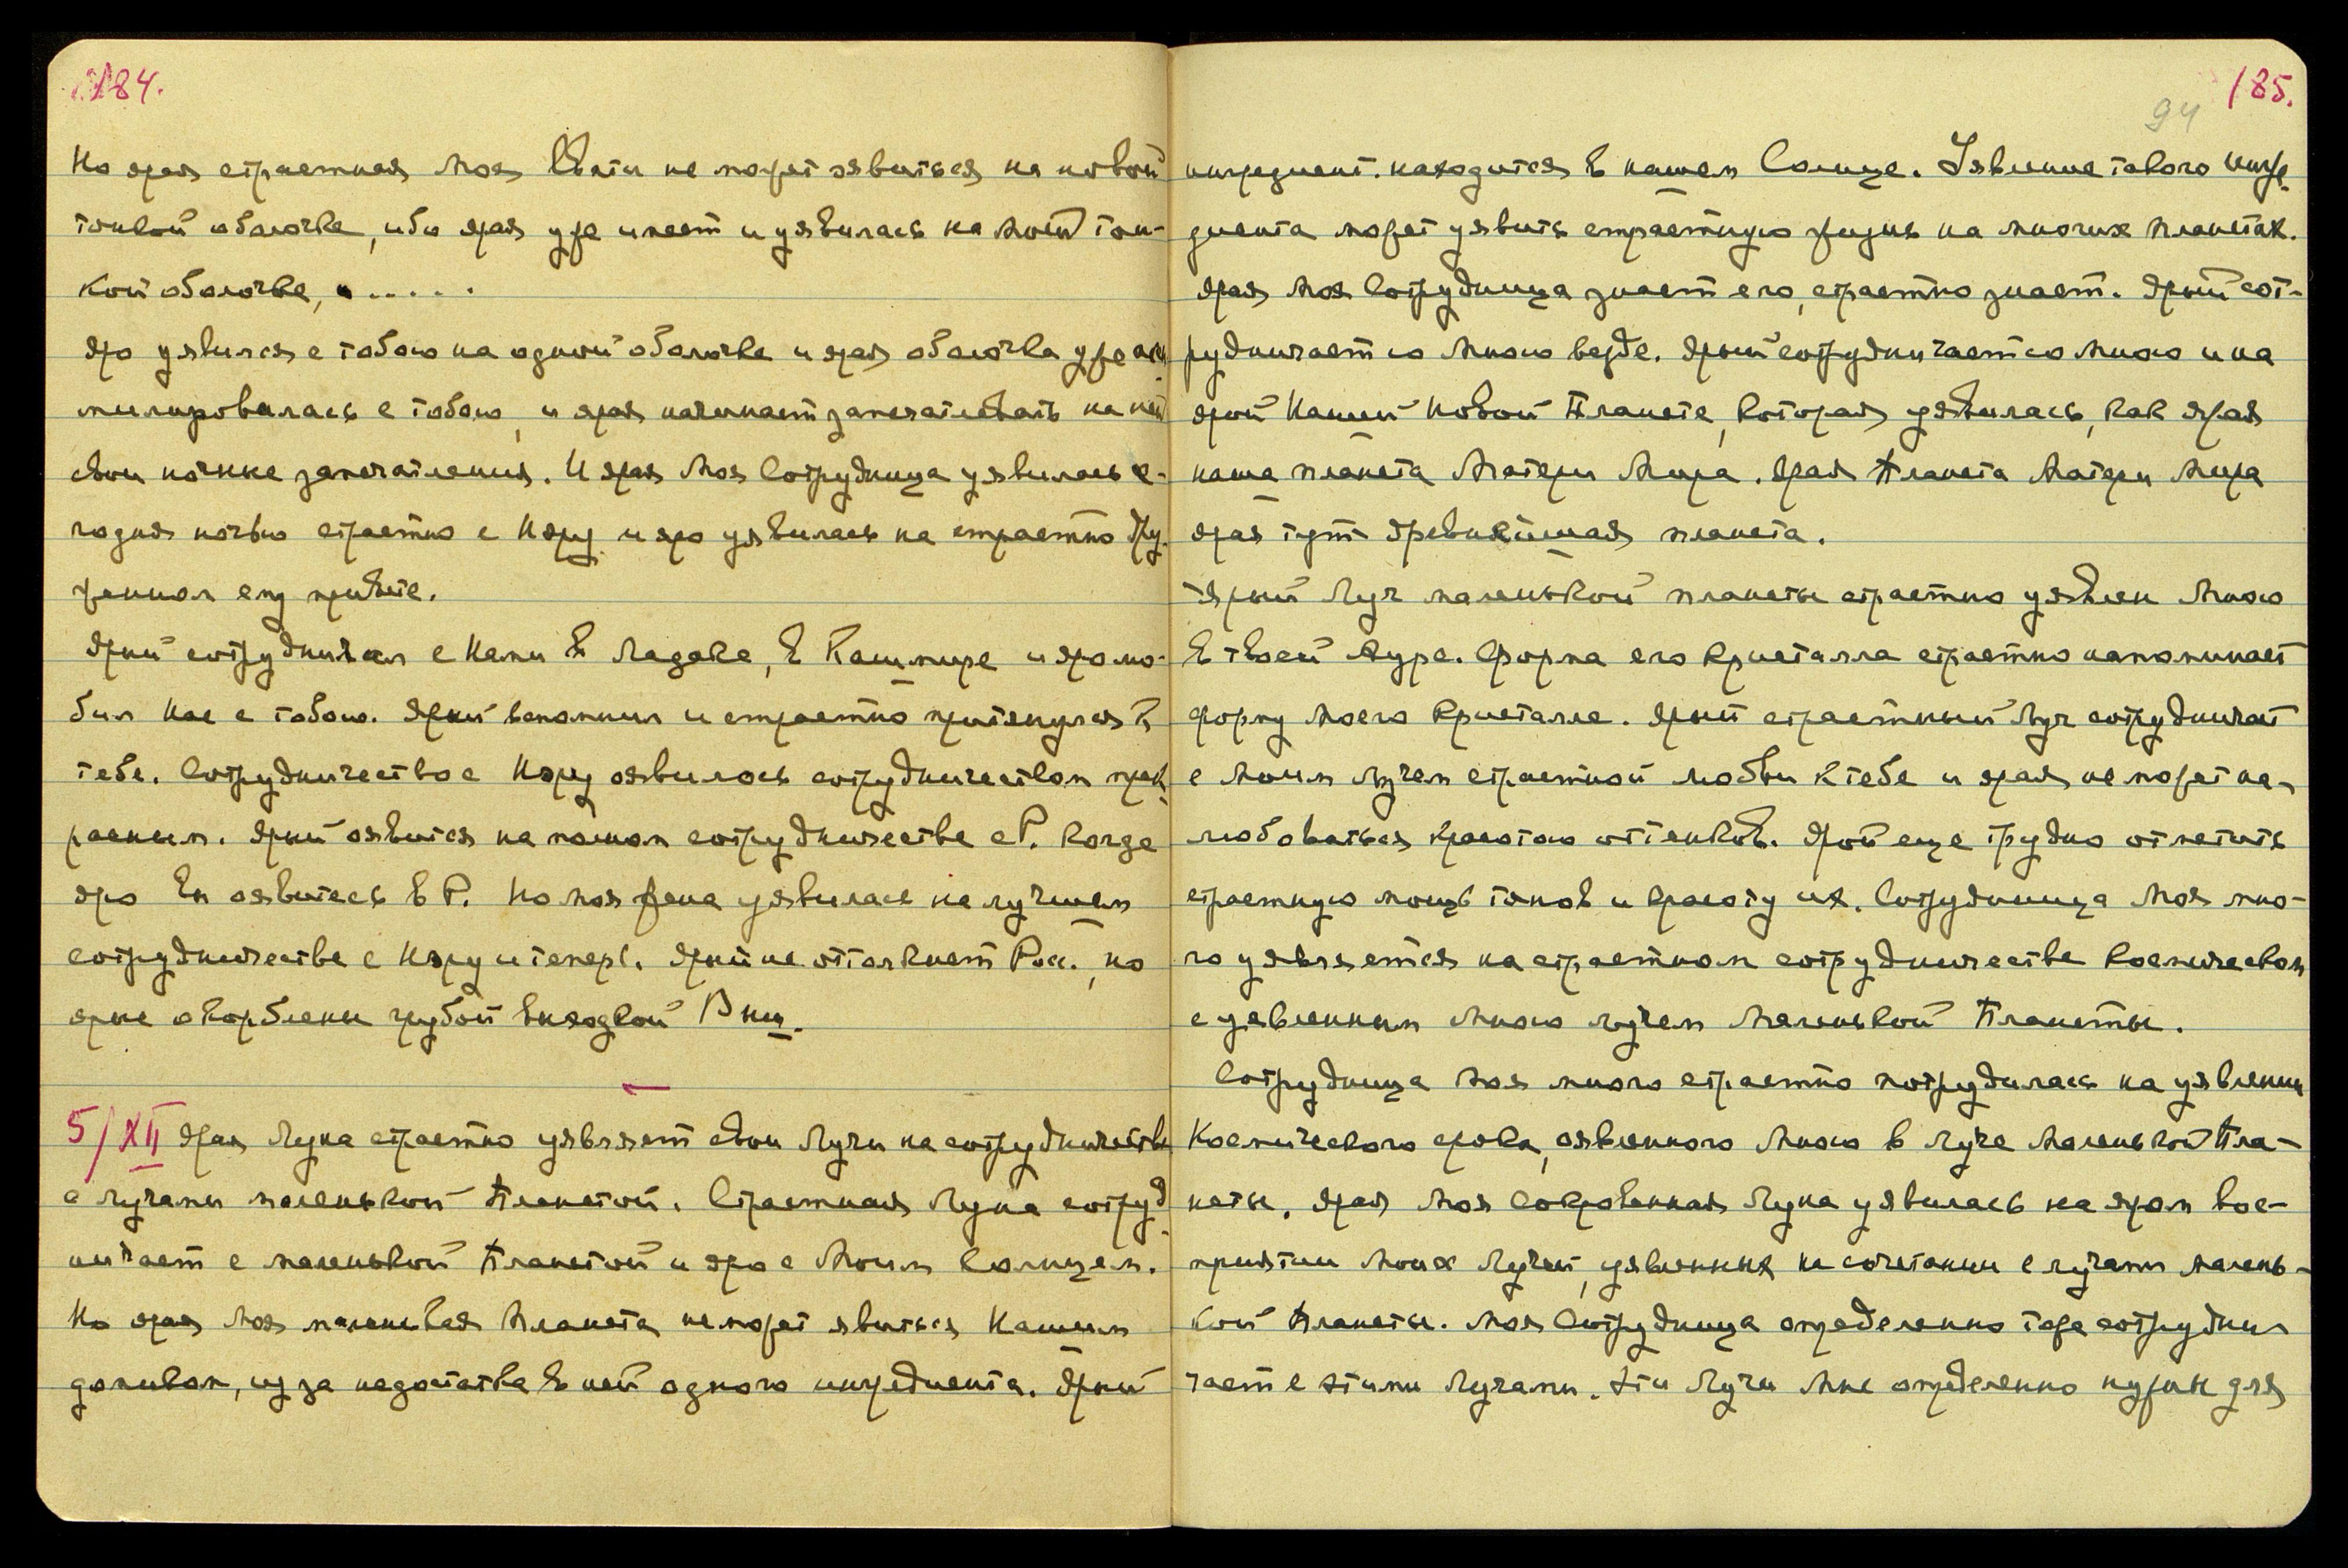 184.
Но ярая страстная Моя Свати не может явиться на новой
тонкой оболочке, ибо ярая уже имеет и уявилась на моей тон-
кой оболочке, .....
Яро уявился с тобою на одной оболочке и ярая оболочка уже асси
милировалась с тобою, и ярая начинает запечатлевать на ней
свои ночные запечатления. И ярая Моя Сотрудница уявилась се-
годня ночью страстно с Неру и яро уявилась на страстно дру-
жеском ему привете.
Ярый сотрудничал с Нами в Ладаке, в Кашмире и яро лю-
бил нас с тобою. Ярый вспомнил и страстно притянулся к
тебе. Сотрудничество с Неру оявилось сотрудничеством прек-
расным. Ярый оявится на полном сотрудничестве с Р. когда
яро вы оявитесь в Р. Но моя жена уявилась на лучшем
сотрудничестве с Неру и теперь. Ярый не оттолкнет Росс., но
ярые оскорблены грубой выходкой Виш.
5/XII Ярая Луна страстно уявляет свои Лучи на сотрудничестве
с лучами маленькой Планетой. Страстная Луна сотруд-
ничает с маленькой Планетой и яро с Моим Солнцем.
Но ярая Моя маленькая Планета не может явиться Нашим
домиком, из за недостатка в ней одного ингредиента. Ярый
185.
94
ингредиент. находится в нашем Солнце. Уявление такого ингре-
диента может уявить страстную жизнь на многих планетах.
Ярая Моя Сотрудница знает его, страстно знает. Ярый сот-
рудничает со Мною везде. Ярый сотрудничает со Мною и на
ярой Нашей Новой Планете, которая уявилась, как ярая
наша планета Матери Мира. Ярая Планета Матери Мира
ярая тут древнейшая планета.
Ярый Луч маленькой планеты страстно уявлен Мною
в твоей Ауре. Форма его Кристалла страстно напоминает
форму Моего Кристалла. Ярый страстный Луч сотрудничает
с Моим лучем страстной любви к тебе и ярая не может на-
любоваться красотою оттенков. Ярой еще трудно отметить
страстную мощь тонов и красоту их. Сотрудница Моя мно-
го уявляется на страстном сотрудничестве Космическом
с уявленным Мною лучем Маленькой Планеты.
Сотрудница Моя много страстно потрудилась на уявлении
Космического срока, оявленного Мною в Луче Маленькой Пла-
неты. Ярая Моя Сокровенная Луна уявилась на яром вос-
приятии Моих Лучей, уявленных на сочетании с лучами малень-
кой Планеты. Моя Сотрудница определенно тоже сотрудни
чает с этими Лучами. Эти Лучи Мне определенно нужны для